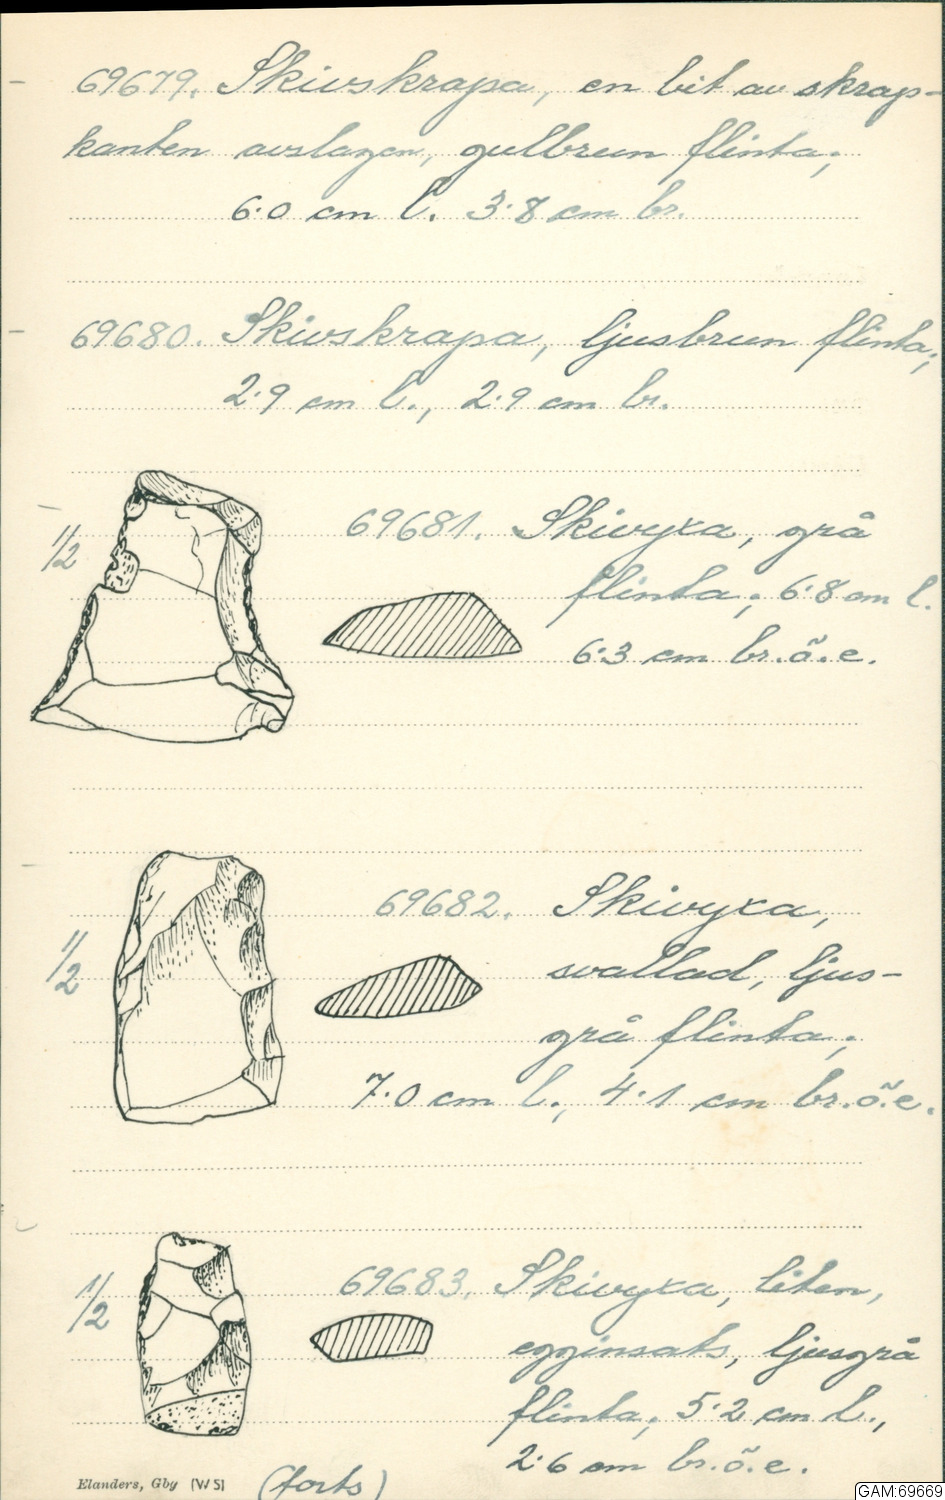 69679. Skivskrapa, en bit av skrap-
kanten avslagen, gulbrun flinta;
6·0 cm l. 3·8 cm br.
69680. Skivskrapa, ljusbrun flinta;
2·9 cm l., 2·9 cm br.
1/2
69681. Skivyxa, grå
flinta; 6·8 cm l.
6·3 cm br.ö.e.
1/2
69682. Skivyxa,
svallad, ljus-
grå flinta;
7·0 cm l., 4·1 cm br.ö.e.
1/2
69683. Skivyxa, liten,
egginsats, ljusgrå
flinta; 5·2 cm l.,
2·6 cm br.ö.e.
Elanders, Gby [WS]
(forts)
GAM:69669